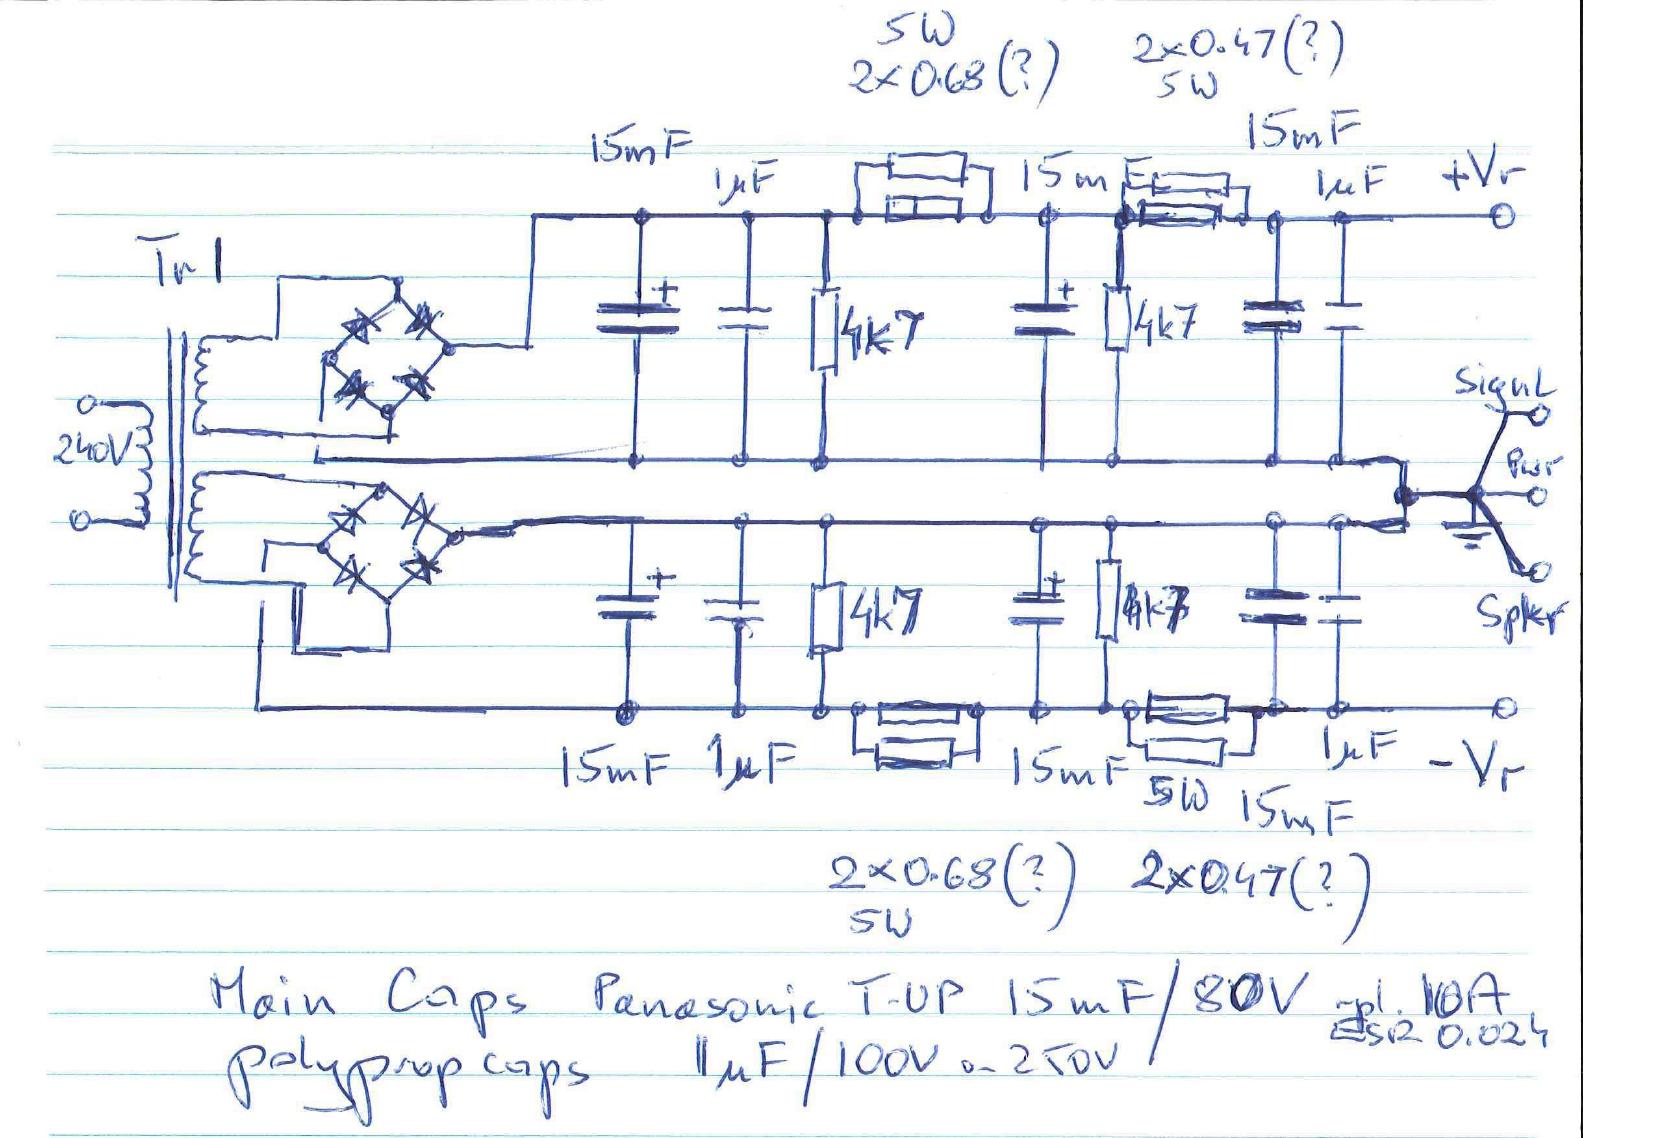 5W
2x0.68(?)
2x0.47(?)
5W
15mF
1µF
15mF
15mF
1µF
+Vr
Tr1
4k7
4k7
240V
SignL
Pwr
4k7
4k7
Spkr
15mF
1µF
15mF
5W
15mF
1µF
-Vr
2x0.68(?)
5W
2x0.47(?)
Main Caps Panasonic T-UP 15mF/80V 10A
ESR 0.024
polyprop caps 1µF/100V 250V